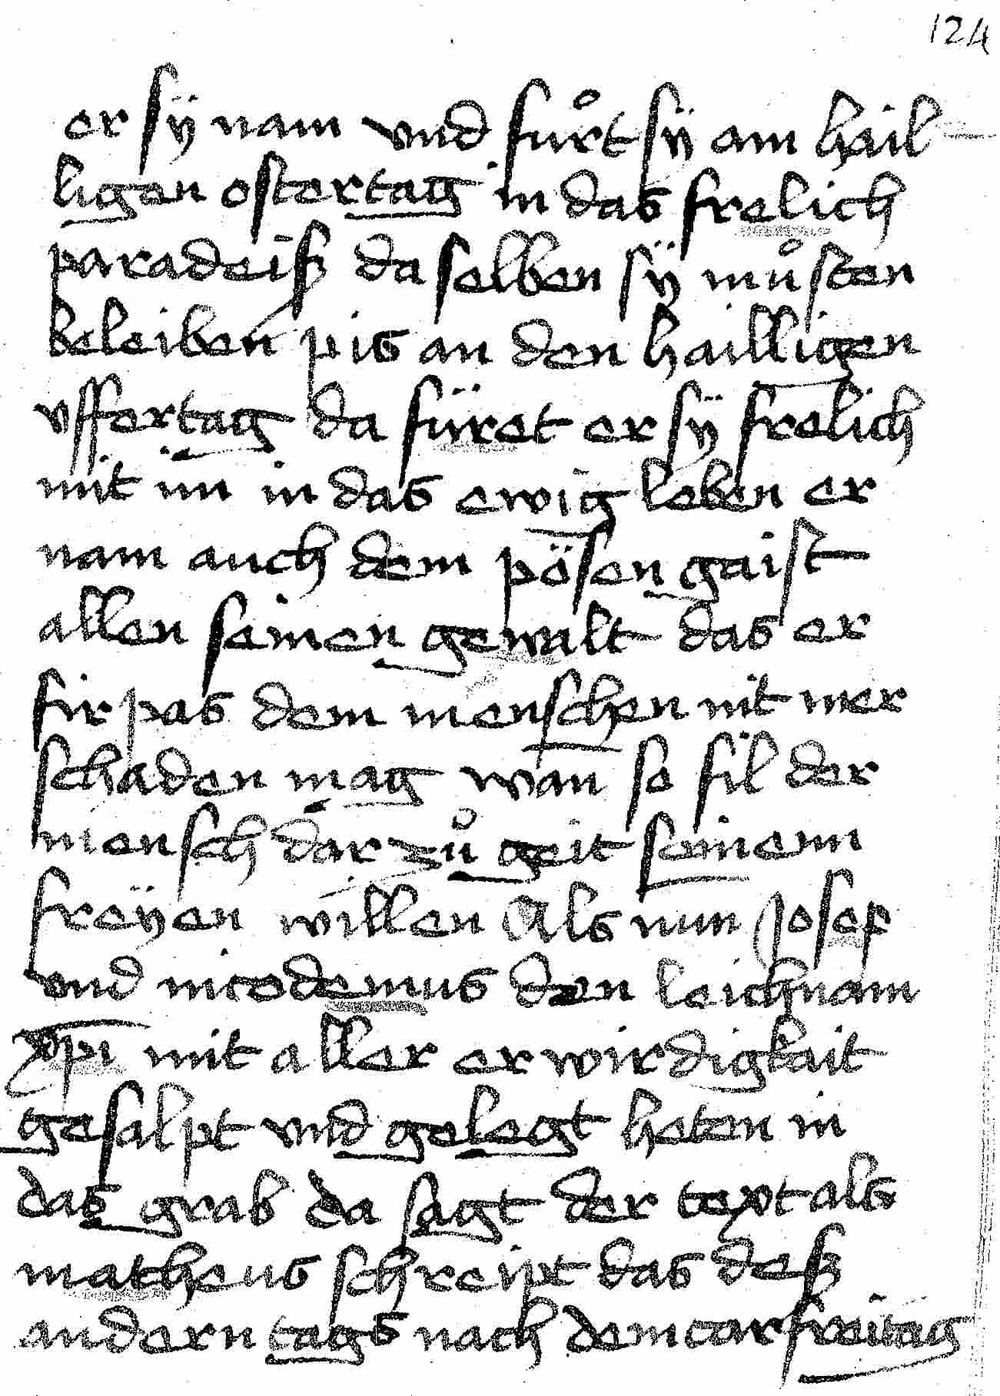 124
er sÿ nam vnd fůrt sÿ am hail-
ligen ostertag in das frelich
paradeiß da selben sÿ můsten
beleiben pis an den hailligen
vffertag da füret er sÿ frelich
mit im in das ewig leben er
nam auch dem pösen gaist
allen seinen gewalt das er
fir pas dem menschen nit mer
schaden mag wan so fil der
mensch dar zů geit seinenn
freÿen willen Als nun Josef
vnd nicodemus den leichnam
xp̄i mit aller erwirdigkait
gesalpt vnd gelegt heten in
das grab da sagt der text als
matheus schreipt das deß
andern tags nach dem carfreitag